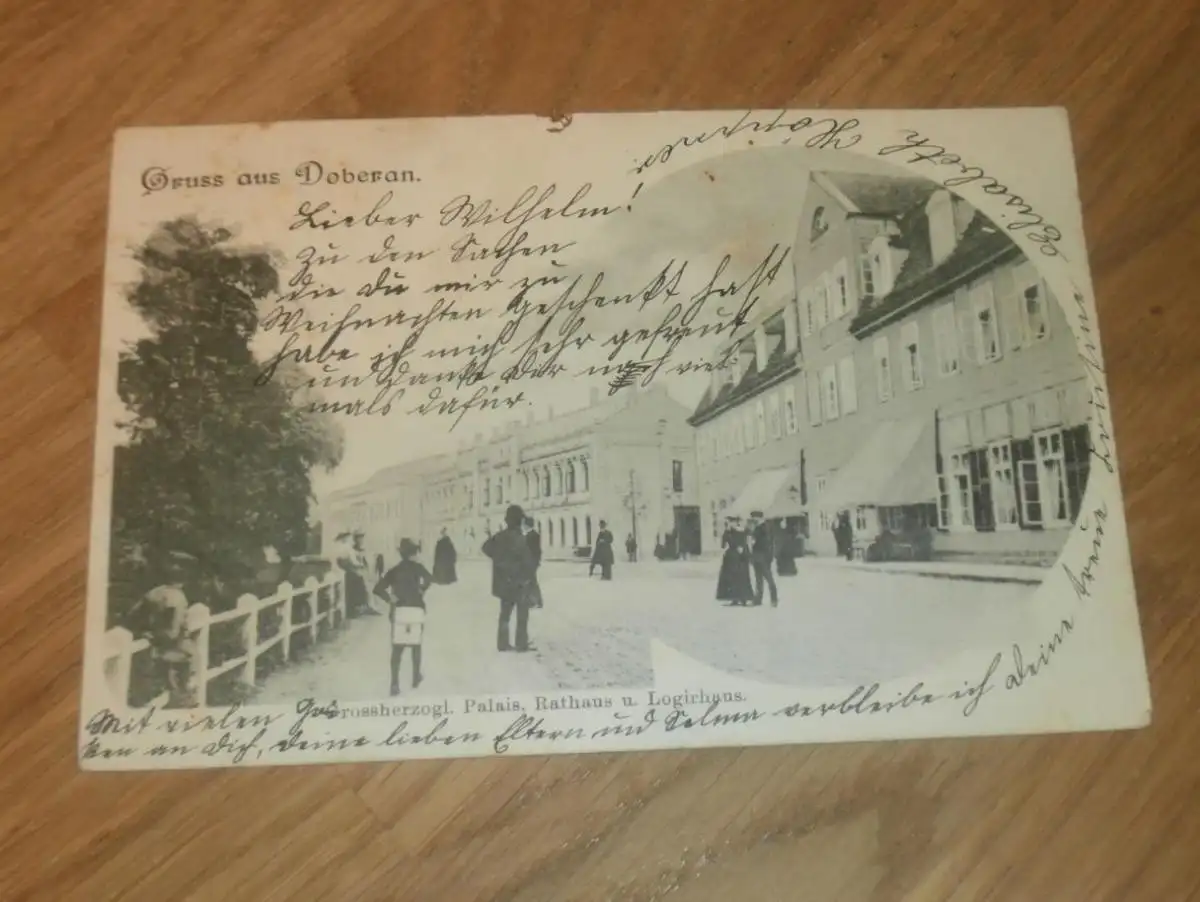 Gruss aus Doberan.
Lieber Wilhelm!
Zu den Sachen
die Du mir zu
Weihnachten geschenkt hast
habe ich mich sehr gefreut
und danke Dir noch viel-
mals dafür.
Grossherzogl. Palais, Rathaus u. Logirhaus.
Mit vielen Grüs
ken an Dich, Deine lieben Eltern und Selma verbleibe ich Deine treue Cousine
Elisabeth